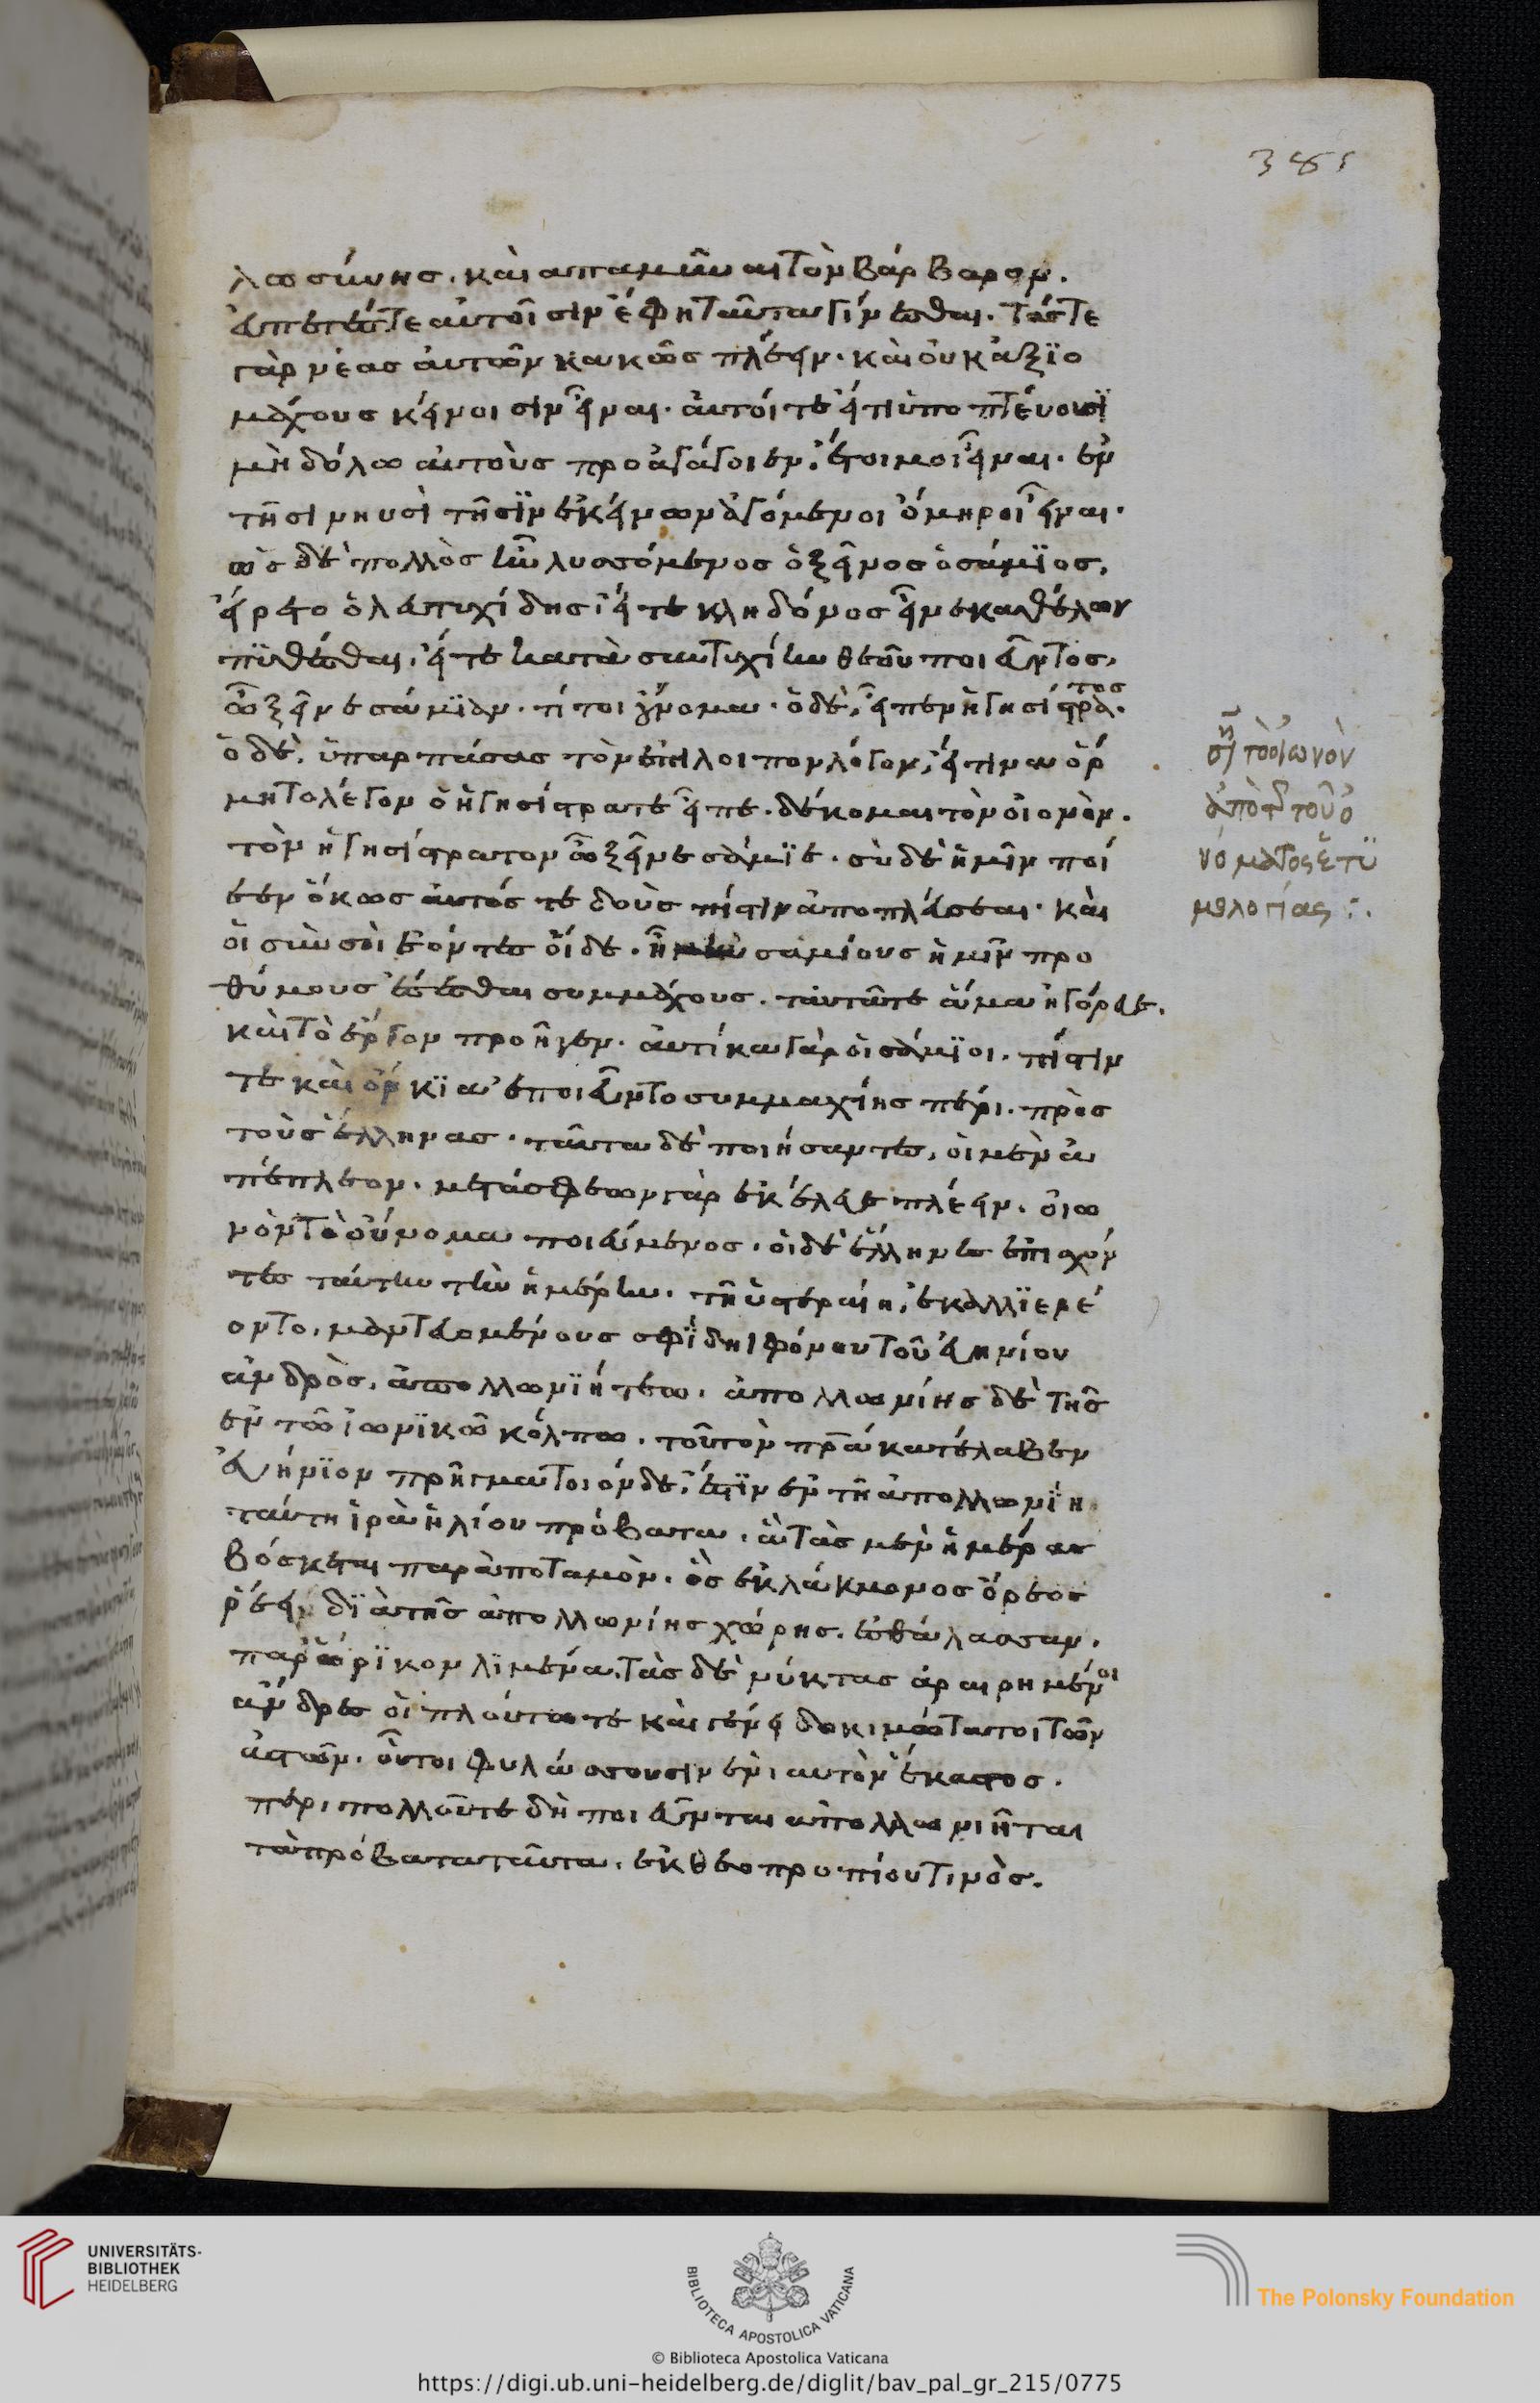 λοσύνης. καὶ απαμῦναι τὸν βάρβαρον.
ἐυπετές τε αὐτοῖσιν ἔφη ταῦτα γίνεσθαι. τάς τε
γὰρ νέας ἀυτῶν κακῶς πλέειν. καὶ ὀυκ ἀξϊο
μάχους κείνοισιν εἶναι. ἀυτοί τε εἴ τι ὑποπτέυουσϊ
μὴ δόλω ἀυτοὺς προἀγάγοιεν, ἕτοιμοι εἶναι. ἐν
τῆσι νηυσὶ τῆσϊν ἐκείνων ἀγόμενοι ὅμηροι εἶναι.
ὡς δὲ πολλὸς ἦν λυσσόμενος ὁ ξεῖνος ὁ σάμϊος,
εἴρετο ὁ λευτυχίδης εἴτε κληδόνος εἵνεκα θέλων
πϋθέσθαι, εἴτε κατὰ συντυχίην θεοῦ ποιεῦντος,
ὦ ξεῖνε σάμϊαν. τί τοι οὔνομα. ὁ δὲ, εἶπεν ἡγησίστρατος.
ὁ δὲ, ὑπαρπάσας τὸν ἐπίλοιπον λόγον, εἴ τινα ὅρ
μητο λέγον ὁ ἡγησίστρατε εἶπε. δέκομαι τὸν οἰονὸν.
τὸν ἡγησίστρατον ὦ ξεῖνε σάμϊε. σὺ δὲ ἡμῖν ποί
εεν ὅκως ἀυτός τε δοὺς πίστιν ἀποπλέυσεαι. καὶ
οἱ σὺν σοὶ ἐόντες οἵδε. ἦ μὲν σαμίους ἡμῖν προ
θύμους ἔσεσθαι συμμάχους. ταῦτά τε ἅμα ἠγόρευε.
καὶ τὸ ἔργον προῆγεν. ἀυτίκα γὰρ οἱ σάμϊοι. πίστιν
τε καὶ ὅρκϊα ἐποιεῦντο συμμαχίης πέρι. πρὸς
τοὺς ἕλληνας. ταῦτα δὲ ποιήσαντες, οἱ μὲν ἀ
πέπλεον. μετὰ σφέων γὰρ ἐκέλευε πλέειν. ὀιω
νὸν τὸ οὔνομα ποιεύμενος. οἱ δὲ ἕλληνες ἐπισχόν
τες ταύτην τὴν ἡμέρην. τῆ ὑστεραίη, ἐκαλλϊερέ
οντο, μαντευομένους σφϊ δηϊφόνου τοῦ ἐυηνίου
ἀνδρὸς, ἀπολλωνϊήτεω. ἀπολλωνίης δὲ τῆς
ἐν τῶ ἰωνϊκῶ κόλπω. τοῦτον πρᾶ κατέλαβεν
ἐυήνϊον πρῆγμα τοιόνδε. ἔστϊν ἐν τῆ ἀπολλωνϊη
ταύτη ἱρὰ ἡλίου πρόβατα. ἃ τὰς μὲν ἡμέρας
βόσκεται παρὰ ποταμὸν. ὃς ἐκ λάκμονος ὄρεος
ῥέει δϊὰ τῆς ἀπολλωνίης χώρης. ἐς θάλασσαν.
παρ ὤρϊκον λϊμένα, τὰς δὲ νύκτας ἀραιρημένοι
ἄνδρες οἱ πλούτω τε καὶ γένει δοκιμώτατοι τῶν
ἀστῶν. οὗτοι φυλάσσουσιν ἐνιαυτὸν ἕκαστος.
πέρι πολλοῦ τε δὴ ποιεῦνται ἀπολλωνιῆται
τὰ πρόβατα ταῦτα. ἐκ θεοπροπίου τινὸς.
ση τὸ οἰωνὸν
ἀπὸ τοῦ ὀ
νόματος ἐτϋ
μολογίας :.
UNIVERSITÄTS-
BIBLIOTHEK
HEIDELBERG
BIBLIOTECA APOSTOLICA VATICANA
The Polonsky Foundation
© Biblioteca Apostolica Vaticana
https://digi.ub.uni-heidelberg.de/diglit/bav_pal_gr_215/0775